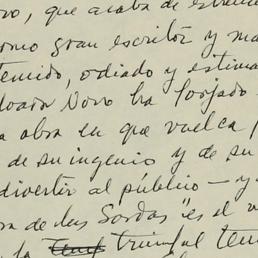 ovo, que acaba de estrena
como gran escritor y ma
temido, odiado y estima
lvador Novo ha forjado
a obra en que vuelca
de su ingenio y de su
divertir al público — y
ra de las Sordas" es el v
la triunfal tem